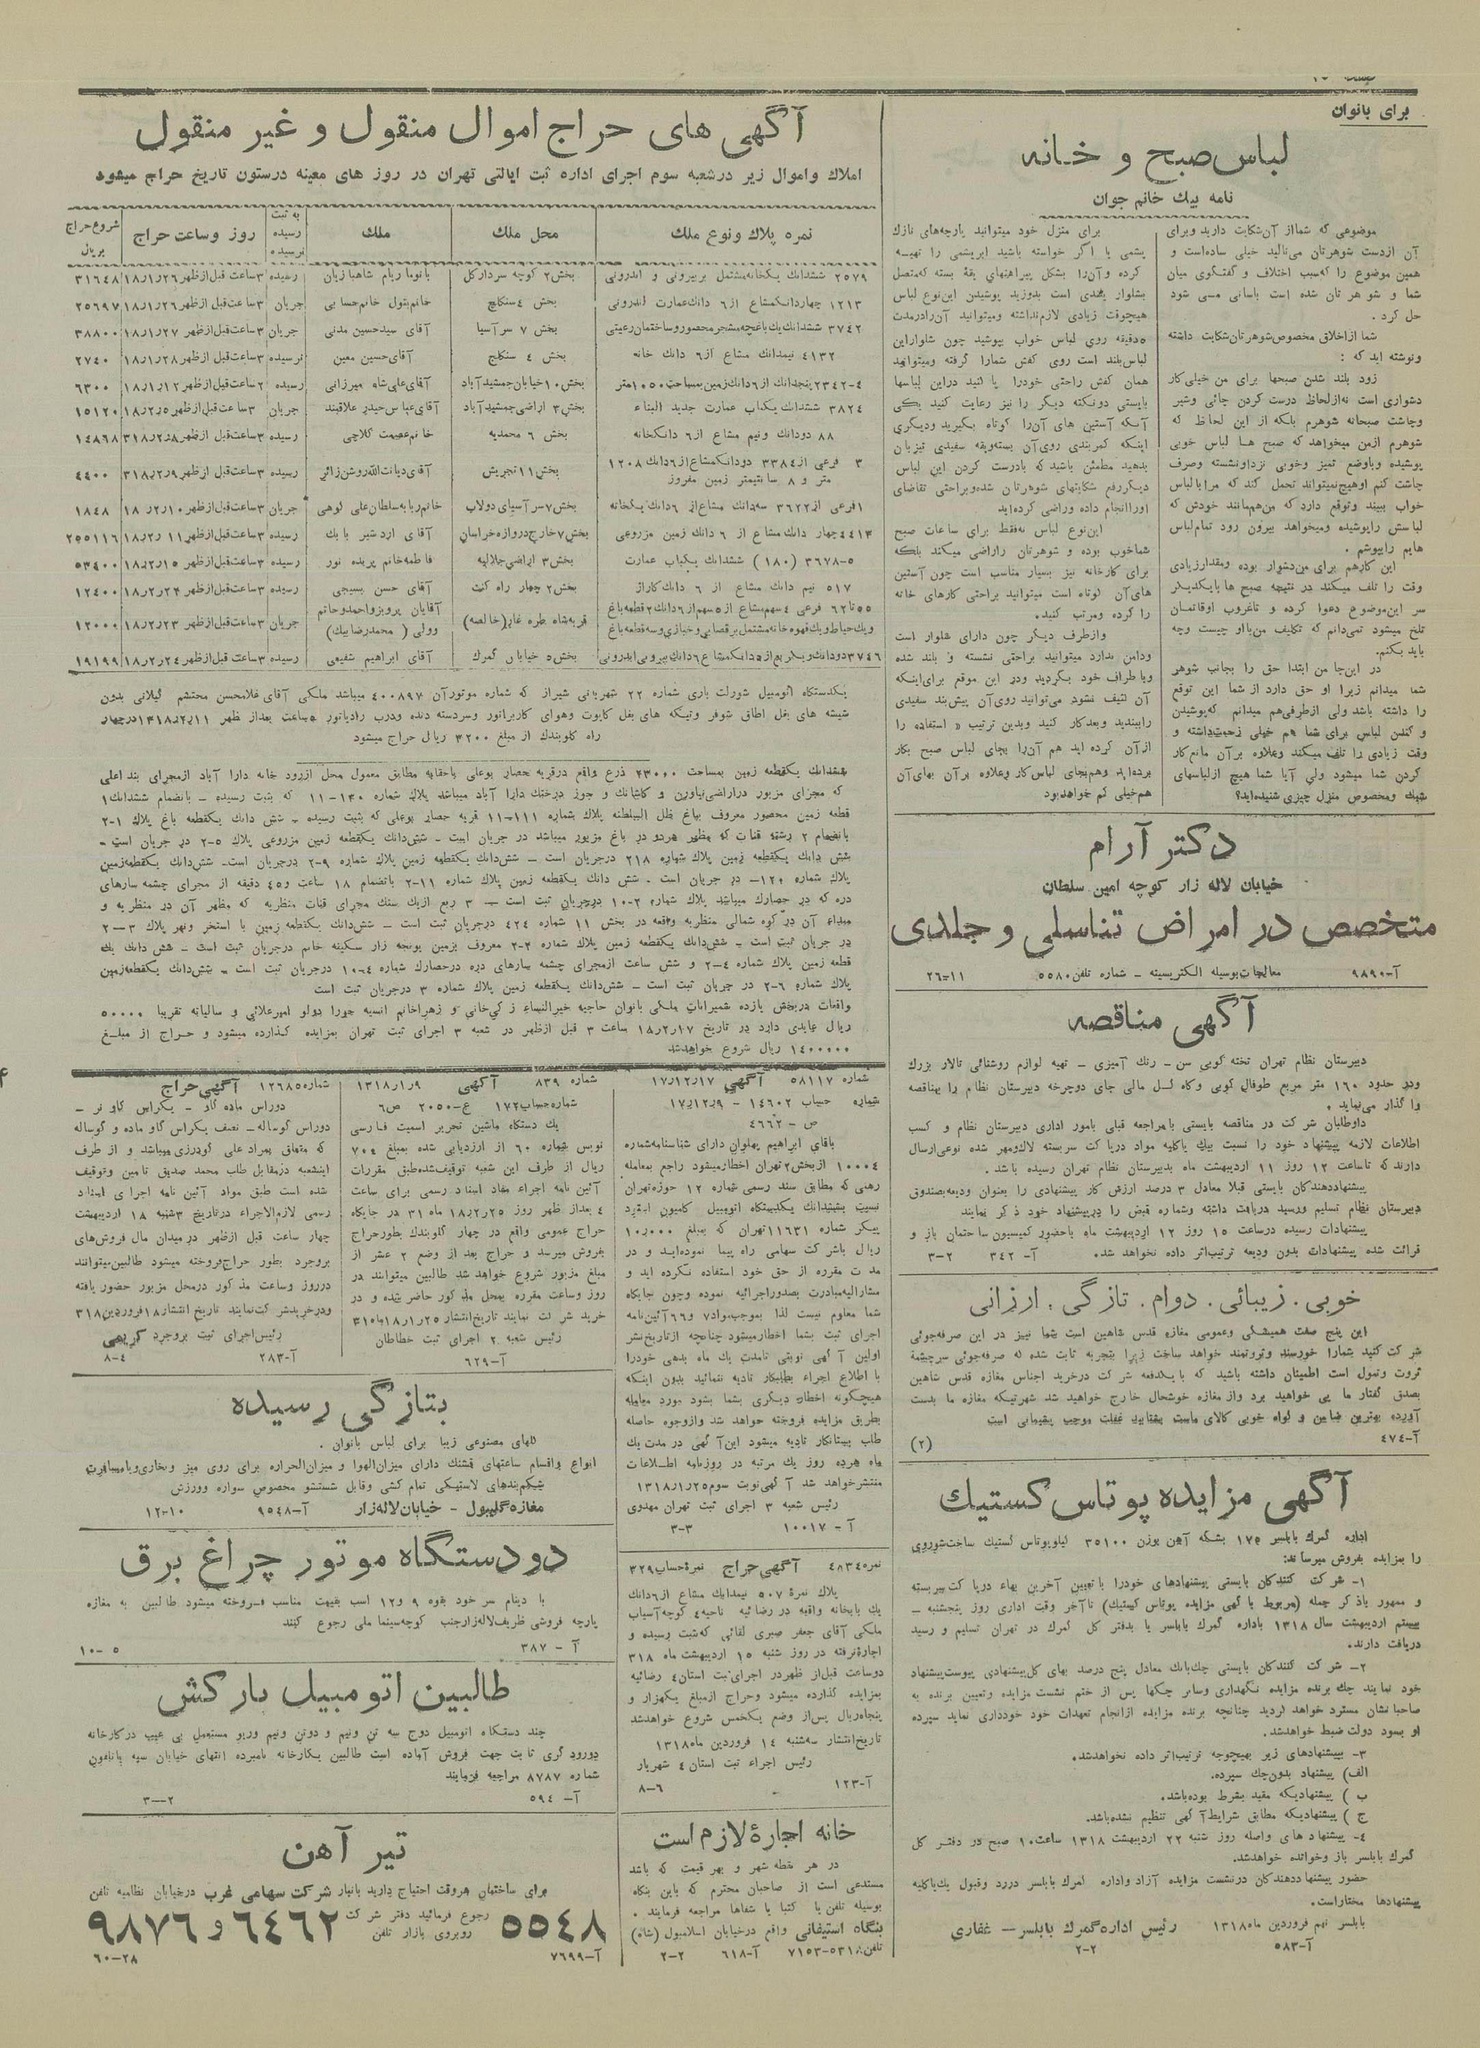 برای بانوان
لباس صبح و خانه
نامه بیک خانم جوان
موضوعی که شما از آن شکایت دارید و برای
آن از دست شوهرتان می‌نالید خیلی ساده است و
همین موضوع را که سبب اختلاف و گفتگوی میان
شما و شوهرتان شده است باسانی میسی شود
حل کرد.
شما از اخلاق مخصوص شوهرتان شکایت داشته
ونوشته اید که :
زود بلند شدن صبحها برای من خیلی کار
دشواری است نه از لحاظ درست کردن چائی وشیر
وچاشت صبحانه شوهرم بلکه از این لحاظ که
شوهرم ازمن میخواهد که صبح ها لباس خوبی
پوشیده وباوضع تمیز وخوبی نزد اونشسته وصرف
چاشت کنم اوهیچ نمیتواند تحمل کند که مرا با لباس
خواب ببیند وتوقع دارد که من هم مانند خودش که
لباسش را پوشیده ومیخواهد بیرون رود تمام لباس
هایم را بپوشم .
این کار هم برای من دشوار بوده ومقدار زیادی
وقت را تلف میکند در نتیجه صبح ها با یکدیگر
سر این موضوع دعوا کرده و تا غروب اوقاتمان
تلخ میشود نمی‌دانم که تکلیف من با او چیست وچه
باید بکنم.
در این جا من ابتدا حق را بجانب شوهر
شما میدانم زیرا او حق دارد از شما این توقع
را داشته باشد ولی از طرفی هم میدانم که پوشیدن
و کندن لباس برای شما هم خیلی زحمت داشته و
وقت زیادی را تلف میکند وعلاوه بر آن مانع کار
کردن شما میشود ولی آیا شما هیچ از لباسهای
شیک ومخصوص منزل چیزی شنیده‌اید؟
برای منزل خود میتوانید پارچه‌های نازک
پشمی یا اگر خواسته باشید ابریشمی را تهیه
کرده وآن را بشکل پیراهنهای یقهٔ بسته که متصل
بشلوار بلندی است بدوزید پوشیدن این نوع لباس
هیچوقت زیادی لازم نداشته ومیتوانید آن را در مدت
۵ دقیقه روی لباس خواب بپوشید چون شلوار این
لباس بلند است روی کفش شما را گرفته ومیتوانید
همان کفش راحتی خود را پا کنید در این لباسها
بایستی دو نکته دیگر را نیز رعایت کنید یکی
آنکه آستین های آن را کوتاه بگیرید ودیگری
اینکه کمربندی روی آن بسته ویقه سفیدی نیز بان
بدهید مطمئن باشید که با درست کردن این لباس
دیگر رفع شکایتهای شوهرتان شده وبراحتی تقاضای
او را انجام داده وراضی کرده‌اید
این نوع لباس نه فقط برای ساعات صبح
شما خوب بوده و شوهرتان را راضی میکند بلکه
برای کارخانه نیز بسیار مناسب است چون آستین
های آن کوتاه است میتوانید براحتی کارهای خانه
را کرده ومرتب کنید.
واز طرف دیگر چون دارای شلوار است
ودامن ندارد میتوانید براحتی نشسته و بلند شده
وبا طراف خود بگردید ودر این موقع برای اینکه
آن کثیف نشود می‌توانید روی آن پیش بند سفیدی
را ببندید وبعد کار کنید وبدین ترتیب « استفاده را
از آن کرده اید هم آن را بجای لباس صبح بکار
برده‌اید وهم بجای لباس کار وعلاوه بر آن بهای آن
هم خیلی کم خواهد بود
دکتر آرام
خیابان لاله زار کوچه امین سلطان
متخصص در امراض تناسلی و جلدی
آ-۹۸۹۰ معالجات بوسیله الکتریسیته – شماره تلفن ۵۵۸۰ ۱۱-۲۶
آگهی مناقصه
دبیرستان نظام تهران تخته کوبی سن – رنگ آمیزی – تهیه لوازم روشنائی تالار بزرگ
ودر حدود ۱۶۰ متر مربع طوفال کوبی وکاه گل مالی جای دوچرخه دبیرستان نظام را بمناقصه
وا گذار می‌نماید .
داوطلبان شرکت در مناقصه بایستی با مراجعه قبلی بامور اداری دبیرستان نظام و کسب
اطلاعات لازمه پیشنهاد خود را نسبت بیک یا کلیه مواد در پاکت سربسته لاک ومهر شده نوعی ارسال
دارند که تا ساعت ۱۲ روز ۱۱ اردیبهشت ماه بدبیرستان نظام تهران رسیده باشد .
پیشنهاد دهندگان بایستی قبلا معادل ۳ درصد ارزش کار پیشنهادی را بعنوان ودیعه بصندوق
دبیرستان نظام تسلیم ورسید دریافت داشته وشماره قبض را در پیشنهاد خود ذکر نمایند
پیشنهادات رسیده در ساعت ۱۵ روز ۱۲ اردیبهشت ماه با حضور کمیسیون ساختمان باز و
قرائت شده پیشنهادات بدون ودیعه ترتیب اثر داده نخواهد شد. آ- ۳۴۲ ۲-۳
خوبی. زیبائی. دوام. تازگی. ارزانی
این پنج صفت همیشگی وعمومی مغازه قدس شاهین است شما نیز در این صرفه جوئی
شرکت کنید شما را خورسند وثروتمند خواهد ساخت زیرا بتجربه ثابت شده که صرفه جوئی سرچشمهٔ
ثروت وتمول است اطمینان داشته باشید که با یکدفعه شرکت در خرید اجناس مغازه قدس شاهین
بصدق گفتار ما پی خواهید برد واز مغازه خوشحال خارج خواهید شد شهرتیکه مغازه ما بدست
آورده بهترین ضامن و گواه خوبی کالای ماست بشتابید غفلت موجب پشیمانی است
آ-۴۷۴ (۲)
آگهی مزایده پوتاس کستیک
اداره گمرک بابلسر ۱۷۵ بشکه آهن بوزن ۳۵۱۰۰ کیلو پوتاس کستیک ساخت شوروی
را بمزایده بفروش میرساند:
۱- شرکت کنندگان بایستی پیشنهادهای خود را با تعیین آخرین بهاء در پاکت سربسته
و ممهور با ذکر جمله (مربوط با گهی مزایده پوتاس کستیک) تا آخر وقت اداری روز پنجشنبه –
بیستم اردیبهشت سال ۱۳۱۸ باداره گمرک بابلسر یا بدفتر کل گمرک در تهران تسلیم و رسید
دریافت دارند.
۲- شرکت کنندگان بایستی چک بانک معادل پنج درصد بهای کل پیشنهادی پیوست پیشنهاد
خود نمایند چک برنده مزایده نگهداری وسایر چکها پس از ختم نشست مزایده وتعیین برنده به
صاحبانشان مسترد خواهد گردید چنانچه برنده مزایده از انجام تعهدات خود خودداری نماید سپرده
او بسود دولت ضبط خواهد شد.
۳- پیشنهادهای زیر بهیچوجه ترتیب اثر داده نخواهد شد.
الف) پیشنهاد بدون چک سپرده.
ب ) پیشنهادیکه مقید بشرط بوده باشد.
ج ) پیشنهادیکه مطابق شرایط آگهی تنظیم نشده باشد.
۴- پیشنهادهای واصله روز شنبه ۲۲ اردیبهشت ۱۳۱۸ ساعت ۱۰ صبح در دفتر کل
گمرک بابلسر باز وخوانده خواهد شد.
حضور پیشنهاد دهندگان در نشست مزایده آزاد واداره گمرک بابلسر در رد وقبول یک یا کلیه
پیشنهادها مختار است.
بابلسر نهم فروردین ماه ۱۳۱۸ رئیس اداره گمرک بابلسر – غفاری
آ-۵۸۳ ۲-۲
آگهی های حراج اموال منقول و غیر منقول
املاک واموال زیر در شعبه سوم اجرای اداره ثبت ایالتی تهران در روز های معینه در ستون تاریخ حراج میشود
نمره پلاک ونوع ملک | محل ملک | ملک | به ثبت رسیده نرسیده | روز وساعت حراج | شروع حراج بریال
۲۵۷۹ ششدانک یکخانه مشتمل بر بیرونی و اندرونی | بخش ۲ کوچه سردار کل | | رسیده | ۳ ساعت قبل از ظهر ۱۸٫۱٫۲۶ | ۳۱۶۴۸
۱۲۱۳ چهار دانک مشاع از ۶ دانک عمارت اندرونی | بخش ۴ سنگلج | خانم بتول خانم حسابی | جریان | ۳ ساعت قبل از ظهر ۱۸٫۱٫۲۶ | ۲۵۶۹۷
۳۷۴۲ ششدانک یک باغچه مشجر محصور وساختمان رعیتی | بخش ۷ سر آسیا | آقای سید حسین مدنی | جریان | ۳ ساعت قبل از ظهر ۱۸٫۱٫۲۷ | ۳۸۸۰۰
۴۱۳۲ نیمدانک مشاع از ۶ دانک خانه | بخش ۴ سنگلج | آقای حسین معین | نرسیده | ۳ ساعت قبل از ظهر ۱۸٫۱٫۲۸ | ۲۷۴۰
۲۳۴۲-۴ پنجدانک از ۶ دانک زمین بمساحت ۱۰۵۰ متر | بخش ۱۰ خیابان جمشید آباد | آقای علی شاه میرزائی | رسیده | ۲ ساعت قبل از ظهر ۱۸٫۱٫۱۲ | ۶۳۰۰
۳۸۲۴ ششدانک یکباب عمارت جدید البناء | بخش ۳ اراضی جمشید آباد | آقای عباس حیدر علاقبند | جریان | ۳ ساعت قبل از ظهر ۱۸٫۲٫۵ | ۱۵۱۲۰
۸۸ دودانک ونیم مشاع از ۶ دانک خانه | بخش ۶ محمدیه | خانم عصمت کلاچی | رسیده | ۳ ساعت قبل از ظهر ۳۱۸٫۲٫۸ | ۱۴۸۶۸
۳ فرعی از ۳۳۸۴ دودانک مشاع از ۶ دانک ۱۲۰۸ متر و ۸ سانتیمتر زمین مفروز | بخش ۱۱ تجریش | آقای دیانت الله روشن زائر | رسیده | ۳ ساعت قبل از ظهر ۳۱۸٫۲٫۹ | ۴۴۰۰
۱ فرعی از ۳۶۲۲ سه دانک مشاع از ۶ دانک یکخانه | بخش ۷ سر آسیای دولاب | خانم ربابه سلطان علی لوهی | جریان | ۳ ساعت قبل از ظهر ۱۸٫۲٫۱۰ | ۱۸۴۸
۴۴۱۳ چهار دانک مشاع از ۶ دانک زمین مزروعی | بخش ۷ خارج دروازه خراسان | آقای اردشیر بابک | رسیده | ۳ ساعت قبل از ظهر ۱۸٫۲٫۱۱ | ۲۵۵۱۱۶
۳۶۷۸-۵ (۱۸۰) ششدانک یکباب عمارت | بخش ۳ اراضی جلالیه | فاطمه خانم پرنده نور | رسیده | ۳ ساعت قبل از ظهر ۱۸٫۲٫۱۵ | ۵۳۴۰۰
۵۱۷ نیم دانک مشاع از ۶ دانک کاراژ | بخش ۲ چهار راه کنت | آقای حسن بسیجی | رسیده | ۳ ساعت قبل از ظهر ۱۸٫۲٫۲۴ | ۱۲۴۰۰
۵۵ تا ۶۲ فرعی ۴ سهم مشاع از ۵ سهم از ۶ دانک ۲ قطعه باغ ویک حیاط ویک قهوه خانه مشتمل بر قصابی و خبازی وسه قطعه باغ | قریه شاه طره غار (خالصه) | آقایان پرویز واحمد وحاتم وولی (محمد رضا بیک) | جریان | ۳ ساعت قبل از ظهر ۱۸٫۲٫۲۳ | ۱۲۰۰۰
۳۷۴۶ دودانک وربع از ۵ دانک مشاع ۶ دانک بیرونی اندرونی | بخش ۵ خیابان گمرک | آقای ابراهیم شفیعی | رسیده | ۳ ساعت قبل از ظهر ۱۸٫۲٫۲۴ | ۱۹۱۹۹
یکدستگاه اتومبیل شورلت باری شماره ۲۲ شهربانی شیراز که شماره موتور آن ۴۰۰۸۹۷ میباشد ملکی آقای غلامحسن محتشم گیلانی بدون
شیشه های بغل اطاق شوفر وتیکه های بغل کاپوت وهوای کاربراتور وسر دسته دنده ودرب رادیاتور ۵ ساعت بعد از ظهر ۱۳۱۸٫۲٫۱۱ در چهار
راه گلوبندک از مبلغ ۳۲۰۰ ریال حراج میشود
ششدانک یکقطعه زمین بمساحت ۲۳۰۰۰ ذرع واقع در قریه حصار بوعلی با حقابه مطابق معمول محل از رود خانه دارا آباد از مجرای بند اعلی
که مجرای مزبور در اراضی نیاورن و کاشانک و جوز درختک دارا آباد میباشد پلاک شماره ۱۳۰-۱۱ که بثبت رسیده – بانضمام ششدانک ۱
قطعه زمین محصور معروف بباغ ظل السلطنه پلاک شماره ۱۱۱-۱۱ قریه حصار بوعلی که بثبت رسیده – شش دانک یکقطعه باغ پلاک ۱-۲
بانضمام ۲ رشته قنات که مظهر هر دو در باغ مزبور میباشد در جریان است – شش دانک یکقطعه زمین مزروعی پلاک ۵-۲ در جریان است –
شش دانک یکقطعه زمین پلاک شماره ۲۱۸ در جریان است – شش دانک یکقطعه زمین پلاک شماره ۹-۲ در جریان است – شش دانک یکقطعه زمین
پلاک شماره ۱۲۰- در جریان است – شش دانک یکقطعه زمین پلاک شماره ۱۱-۲ بانضمام ۱۸ ساعت و ۴۵ دقیقه از مجرای چشمه سارهای
دره که در حصارک میباشد پلاک شماره ۲-۱۰ در جریان ثبت است – ۳ ربع از یک سنک مجرای قنات منظریه که مظهر آن در منظریه و
مبداء آن در کوه شمالی منظریه واقعه در بخش ۱۱ شماره ۴۲۴ در جریان ثبت است – شش دانک یکقطعه زمین با استخر ونهر پلاک ۳-۲
در جریان ثبت است – شش دانک یکقطعه زمین پلاک شماره ۲-۲ معروف بزمین یونجه زار سکینه خانم در جریان ثبت است – شش دانک یک
قطعه زمین پلاک شماره ۴-۲ و شش ساعت از مجرای چشمه سارهای دره در حصارک شماره ۴-۱۰ در جریان ثبت است – شش دانک یکقطعه زمین
پلاک شماره ۶-۲ در جریان ثبت است – شش دانک یکقطعه زمین پلاک شماره ۳ در جریان ثبت است
واقعات در بخش یازده شمیرانات ملکی بانوان حاجیه خیر النساء زکی خانی و زهرا خانم انسیه حورا دولو امیر علائی و سالیانه تقریبا ۵۰۰۰۰
ریال عایدی دارد در تاریخ ۱۸٫۲٫۱۷ ساعت ۳ قبل از ظهر در شعبه ۳ اجرای ثبت تهران بمزایده گذارده میشود و حراج از مبلغ
۱۴۰۰۰۰۰ ریال شروع خواهد شد
شماره ۵۸۱۱۷ آگهی ۱۷٫۱۲٫۱۷
شماره حساب ۱۴۶۰۲ – ۱۷٫۱۲٫۹
ص – ۴۶۶۲
باقای ابراهیم پهلوان دارای شناسنامه شماره
۱۰۰۰۴ از بخش ۲ تهران اخطار میشود راجع بمعامله
رهنی که مطابق سند رسمی شماره ۱۲ حوزه تهران
نسبت بششدانک یکدستگاه اتومبیل کامیون استودبیکر
شماره ۱۱۶۳۱ تهران که بمبلغ ۱۰٫۰۰۰
ریال با شرکت سهامی راه پیما نموده‌اید و در
مدت مقرره از حق خود استفاده نکرده اید و
مشارالیه مبادرت بصدور اجرائیه نموده وچون جایگاه
شما معلوم نیست لذا بموجب مواد ۷ و ۶۶ آئین نامه
اجرای ثبت بشما اخطار میشود چنانچه از تاریخ نشر
اولین آگهی نوبتی تا مدت یک ماه بدهی خود را
با اطلاع اجراء بطلبکار تادیه ننمائید بدون اینکه
هیچگونه اخطار دیگری بشما بشود مورد معامله
بطریق مزایده فروخته خواهد شد واز وجوه حاصله
طلب بستانکار تادیه میشود این آگهی در مدت یک
ماه هر ده روز یک مرتبه در روزنامه اطلاعات
منتشر خواهد شد آگهی نوبت سوم ۱۳۱۸٫۱٫۲۵
رئیس شعبه ۳ اجرای ثبت تهران مهدوی
آ – ۱۰۰۱۷ ۳-۳
نمره ۴۸۳۴ آگهی حراج نمرهٔ حساب ۳۲۹
پلاک نمرهٔ ۵۰۷ نیمدانک مشاع از ۶ دانک
یک بابخانه واقعه در رضائیه ناحیه ۴ کوچه آسیاب
ملکی آقای جعفر صبری لقائی که ثبت رسیده و
اجاره نرفته در روز شنبه ۱۵ اردیبهشت ماه ۳۱۸
دوساعت قبل از ظهر در اجرای ثبت استان ۴ رضائیه
بمزایده گذارده میشود وحراج از مبلغ یکهزار و
پنجاه ریال پس از وضع یک خمس شروع خواهد شد
تاریخ انتشار سه شنبه ۱۴ فروردین ماه ۱۳۱۸
رئیس اجراء ثبت استان ۴ شهریار
آ-۱۲۳ ۶-۸
خانه اجارهٔ لازم است
در هر نقطه شهر و بهر قیمت که باشد
مستدعی است از صاحبان محترم که باین بنگاه
بوسیله تلفن یا کتبا یا شفاها مراجعه فرمایند .
بنگاه استیفائی واقع در خیابان اسلامبول (شاه)
تلفن: ۵۳۱۸-۷۱۵۳ آ-۶۱۸ ۲-۲
شماره ۸۳۹ آگهی ۱۳۱۸٫۱٫۹
شماره حساب ۱۷۲ ع-۲۰۵۰ ص ۶
یک دستگاه ماشین تحریر اسمت فارسی
نویس شماره ۶۰ از ارزیابی شده بمبلغ ۷۰۴
ریال از طرف این شعبه توقیف شده طبق مقررات
آئین نامه اجراء مفاد اسناد رسمی برای ساعت
۴ بعد از ظهر روز ۱۸٫۲٫۲۵ ماه ۳۱ در جایگاه
حراج عمومی واقع در چهار گلوبندک بطور حراج
بفروش میرسد و حراج بعد از وضع ۲ عشر از
مبلغ مزبور شروع خواهد شد طالبین میتوانند در
روز وساعت مقرره بمحل مذکور حاضر شده و در
خرید شرکت نمایند تاریخ انتشار ۱۸٫۱٫۲۵ ماه ۳۱
رئیس شعبه ۲ اجرای ثبت خطاطان
آ-۶۲۹
شماره ۱۲۶۸۵ آگهی حراج
دوراس ماده گاو – یکراس گاو نر –
دوراس گوساله – نصف یکراس گاو ماده و گوساله
که متعلق بمراد علی گودرزی میباشد و از طرف
اینشعبه در مقابل طلب محمد صدیق تامین وتوقیف
شده است طبق مواد آئین نامه اجرای اسناد
رسمی لازم الاجراء در تاریخ ۳ شنبه ۱۸ اردیبهشت
چهار ساعت قبل از ظهر در میدان مال فروش های
بروجرد بطور حراج فروخته میشود طالبین میتوانند
در روز وساعت مذکور در محل مزبور حضور یافته
ودر خرید شرکت نمایند تاریخ انتشار ۱۸ فروردین ۳۱۸
رئیس اجرای ثبت بروجرد کریمی
آ-۲۸۳ ۴-۸
بتازگی رسیده
گلهای مصنوعی زیبا برای لباس بانوان .
انواع واقسام ساعتهای قشنک دارای میزان الهوا و میزان الحراره برای روی میز وبخاری ومسافرت
شیکم بندهای لاستیکی تمام کشی وقابل شستشو مخصوص سواره وورزش
مغازه گلپول – خیابان لاله زار آ-۹۵۴۸ ۱۰-۱۲
دودستگاه موتور چراغ برق
با دینام سر خود بقوه ۹ و ۱۲ اسب بقیمت مناسب فروخته میشود طالبین به مغازه
پارچه فروشی ظریف لاله زار جنب کوچه سینما ملی رجوع کنند
آ – ۳۸۷ ۵-۱۰
طالبین اتومبیل بارکش
چند دستگاه اتومبیل دوج سه تن ونیم و دوتن ونیم وربو مستعمل بی عیب در کارخانه
دورود گری ثابت جهت فروش آماده است طالبین بکارخانه نامبرده انتهای خیابان سپه پانسیون
شماره ۸۷۸۷ مراجعه فرمایند
آ- ۵۹۴ ۲-۳
تیر آهن
برای ساختمان هر وقت احتیاج دارید بانبار شرکت سهامی غرب در خیابان نظامیه تلفن
۵۵۴۸ رجوع فرمائید دفتر شرکت روبروی بازار تلفن ۶۴۶۲ و ۹۸۷۶
آ-۷۶۹۹ ۲۸-۶۰